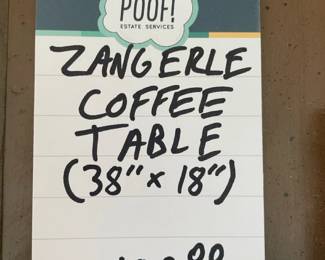 POOF!
ESTATE SERVICES
ZANGERLE
COFFEE
TABLE
(38" x 18")